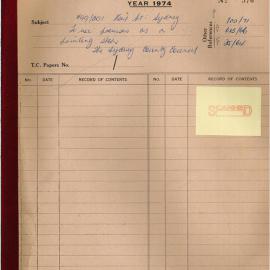 YEAR 1974
No 576
Subject 499/501 Kent St: Sydney
To use premises as a
printing shop
The Sydney County Council
Other References
100/71
35/64
T.C. Papers No.
No. DATE RECORD OF CONTENTS No. DATE RECORD OF CONTENTS
SCANNED